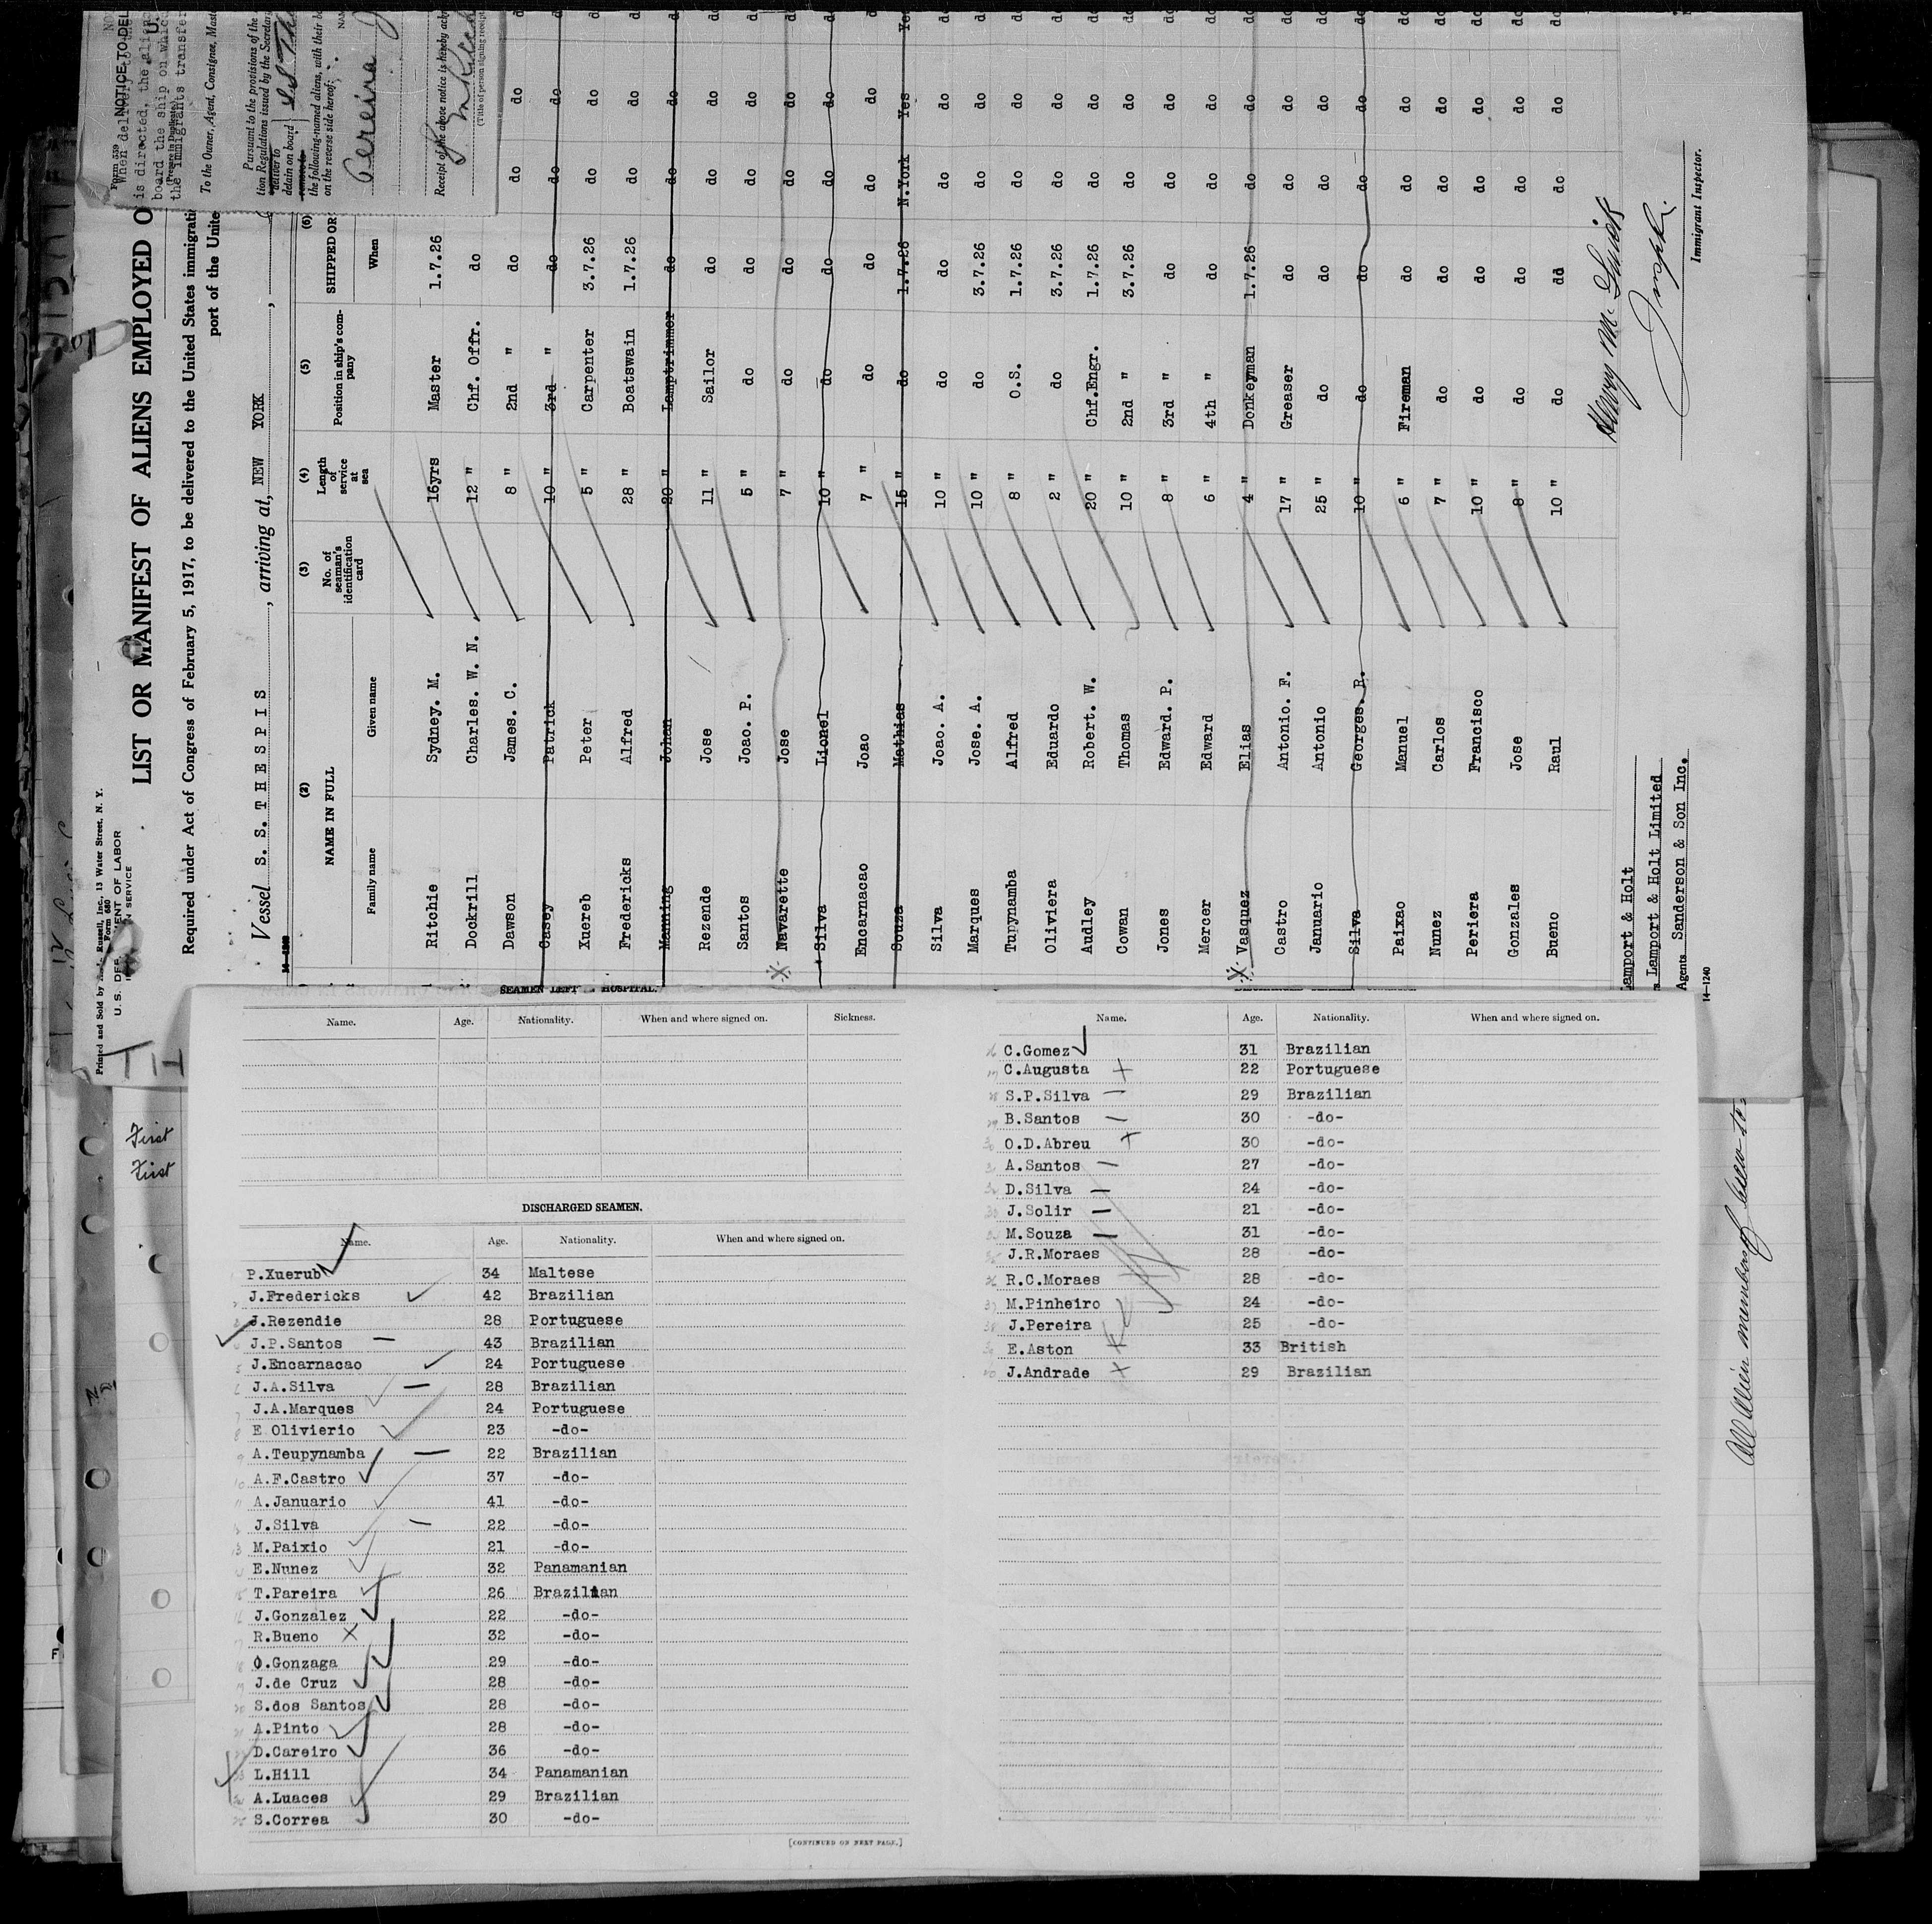 Printed and Sold by Russell, Inc., 13 Water Street, N. Y.
Form 680
U. S. DEPARTMENT OF LABOR
SERVICE
LIST OR MANIFEST OF ALIENS EMPLOYED O
Required under Act of Congress of February 5, 1917, to be delivered to the United States immigrati
port of the Unite
Vessel S. S. T H E S P I S, arriving at, NEW YORK,
(2) (3) (4) (5) (6)
NAME IN FULL No. of seaman's identification card Length of service at sea Position in ship's company SHIPPED OR
Family name Given name When
Ritchie Sydney. M. 15yrs Master 1.7.26
Dockrill Charles. W. N. 12 " Chf. Offr. do
Dawson James. C. 8 " 2nd " do do do do
Casey Patrick 10 " 3rd " do do do do
Xuereb Peter 5 " Carpenter 3.7.26 do do do
Fredericks Alfred 28 " Boatswain 1.7.26 do do do
Manning Johan 20 " Lamptrimmer do do do do
Rezende Jose 11 " Sailor do do do do
Santos Joao. P. 5 " do do do do do
Navarette Jose 7 " do do do do do
Silva Lionel 10 " do do do do do
Encarnacao Joao 7 " do do do do do
Souza Mathias 15 " do 1.7.26 N.York Yes Yes
Silva Joao. A. 10 " do do do do do
Marques Jose. A. 10 " do 3.7.26 do do do
Tupynamba Alfred 8 " O.S. 1.7.26 do do do
Oliviera Eduardo 2 " do 3.7.26 do do do
Audley Robert. W. 20 " Chf.Engr. 1.7.26 do do do
Cowan Thomas 10 " 2nd " 3.7.26 do do do
Jones Edward. P. 8 " 3rd " do do do do
Mercer Edward 6 " 4th " do do do do
Vasquez Elias 4 " Donkeyman 1.7.26 do do do
Castro Antonio. F. 17 " Greaser do do do do
Januario Antonio 25 " do do do do do
Silva Georges. R. 10 " do do do do do
Paixao Manuel 6 " Fireman do do do do
Nunez Carlos 7 " do do do do do
Periera Francisco 10 " do do do do do
Gonzales Jose 8 " do do do do do
Bueno Raul 10 " do do do do do
Lamport & Holt
Lamport & Holt Limited
Agents Sanderson & Son Inc.
14—1240
Henry M.
Immigrant Inspector.
Form 559
NOTICE TO DEL
When delivery
is directed, the alien
board the ship on which
the immigrants transfer
To the Owner, Agent, Consignee, Maste
Pursuant to the provisions of the
tion Regulations issued by the Secretar
deliver to
detain on board
remove to
the following-named aliens, with their b
on the reverse side hereof:
NAM
Pereira J
Receipt of the above notice is hereby ackn
(Title of person signing receipt
First
First
All Alien members of crew to
SEAMEN LEFT HOSPITAL.
Name. Age. Nationality. When and where signed on. Sickness.
DISCHARGED SEAMEN.
Name. Age. Nationality. When and where signed on.
P.Xuerub 34 Maltese
J.Fredericks 42 Brazilian
J.Rezendie 28 Portuguese
J.P.Santos 43 Brazilian
J.Encarnacao 24 Portuguese
J.A.Silva 28 Brazilian
J.A.Marques 24 Portuguese
E Olivierio 23 -do-
A.Teupynamba 22 Brazilian
A.F.Castro 37 -do-
A.Januario 41 -do-
J.Silva 22 -do-
M.Paixio 21 -do-
E.Nunez 32 Panamanian
T.Pareira 26 Brazilian
J.Gonzalez 22 -do-
R.Bueno 32 -do-
O.Gonzaga 29 -do-
J.de Cruz 28 -do-
S.dos Santos 28 -do-
A.Pinto 28 -do-
D.Careiro 36 -do-
L.Hill 34 Panamanian
A.Luaces 29 Brazilian
S.Correa 30 -do-
[CONTINUED ON NEXT PAGE.]
Name. Age. Nationality. When and where signed on.
C.Gomez 31 Brazilian
C.Augusta 22 Portuguese
S.P.Silva 29 Brazilian
B.Santos 30 -do-
O.D.Abreu 30 -do-
A.Santos 27 -do-
D.Silva 24 -do-
J.Solir 21 -do-
M.Souza 31 -do-
J.R.Moraes 28 -do-
R.C.Moraes 28 -do-
M.Pinheiro 24 -do-
J.Pereira 25 -do-
E.Aston 33 British
J.Andrade 29 Brazilian